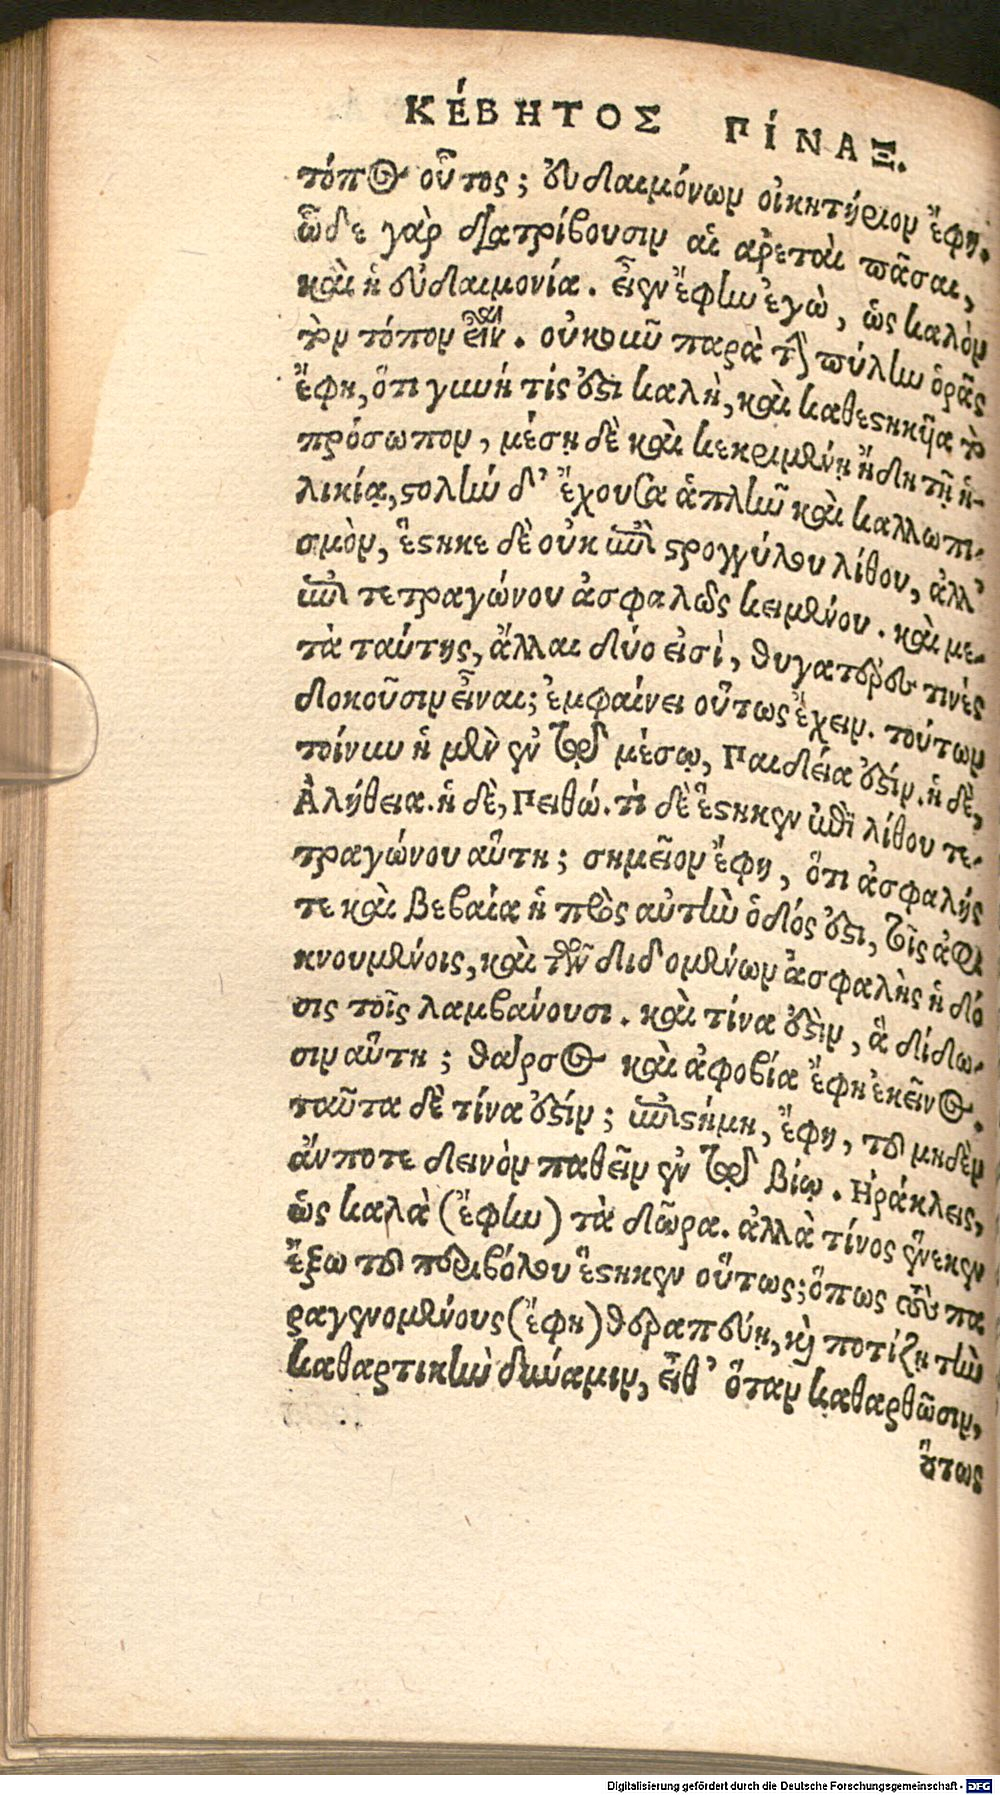 ΚΈΒΗΤΟΣ ΠΊΝΑΞ.
τόπος οὗτος; εὐδαιμόνων οἰκητήριον ἔφη.
ὧδε γὰρ διατρίβουσιν αἱ ἀρεταὶ πᾶσαι,
καὶ ἡ εὐδαιμονία. εἶεν ἔφην ἐγὼ, ὡς καλὸν
τὸν τόπον εἶναι. οὐκοῦν παρὰ τὴν πύλην ὁρᾷς
ἔφη, ὅτι γυνή τίς ἐστι καλὴ, καὶ καθεστηκυῖα τὸ
πρόσωπον, μέσῃ δὲ καὶ κεκριμένῃ ἤδη τῇ ἡ-
λικίᾳ, στολὴν δ' ἔχουσα ἁπλῆν καὶ καλλωπι-
σμὸν, ἕστηκε δὲ οὐκ ἐπὶ στρογγύλου λίθου, ἀλλ'
ἐπὶ τετραγώνου ἀσφαλῶς κειμένου. καὶ με-
τὰ ταύτης, ἄλλαι δύο εἰσὶ, θυγατέρες τινὲς
δοκοῦσιν εἶναι; ἐμφαίνει οὕτως ἔχειν. τούτων
τοίνυν ἡ μὲν ἐν τῷ μέσῳ, Παιδεία ἐστίν. ἡ δὲ,
Ἀλήθεια. ἡ δὲ, Πειθώ. τί δὲ ἕστηκεν ἐπὶ λίθου τε-
τραγώνου αὕτη; σημεῖον ἔφη, ὅτι ἀσφαλής
τε καὶ βεβαία ἡ πρὸς αὐτὴν ὁδός ἐστι, τοῖς ἀφι
κνουμένοις, καὶ τῶν διδομένων ἀσφαλὴς ἡ δό
σις τοῖς λαμβάνουσι. καὶ τίνα ἐστὶν, ἃ δίδω-
σιν αὕτη; θάρσος καὶ ἀφοβία ἔφη ἐκεῖνος.
ταῦτα δὲ τίνα ἐστίν; ἐπιστήμη, ἔφη, τοῦ μηδὲν
ἄν ποτε δεινὸν παθεῖν ἐν τῷ βίῳ. Ἡράκλεις,
ὡς καλὰ (ἔφην) τὰ δῶρα. ἀλλὰ τίνος ἕνεκεν
ἔξω τοῦ περιβόλου ἕστηκεν οὕτως; ὅπως τοὺς πα
ραγενομένους (ἔφη) θεραπεύῃ, καὶ ποτίζῃ τὴν
καθαρτικὴν δύναμιν, εἶθ' ὅταν καθαρθῶσιν,
οὕτως
Digitalisierung gefördert durch die Deutsche Forschungsgemeinschaft - DFG